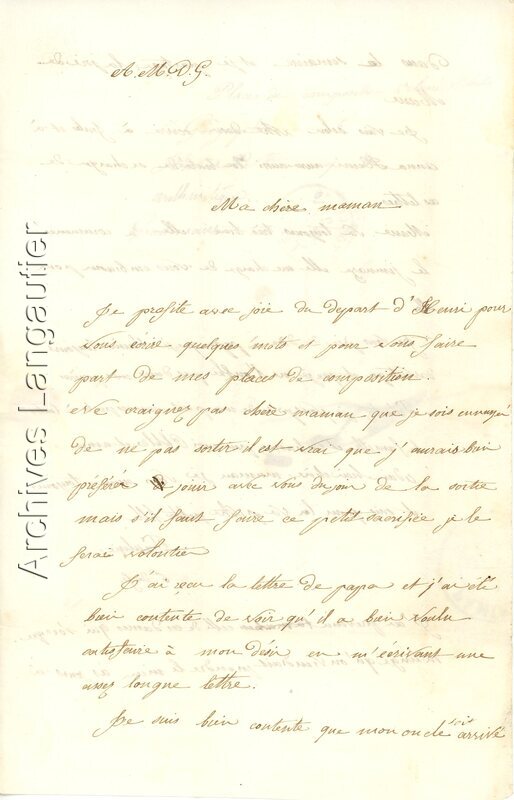 A. M. D. G.
Ma chère maman
Je profite avec joie du depart d'Henri pour
vous ecrire quelques mots et pour vous faire
part de mes places de composition.
Ne craignez pas chère maman que je sois ennuyé
de ne pas sortir il est vrai que j'aurais bien
préférer jouir avec vous du jour de la sortie
mais s'il faut faire ce petit sacrifice je le
ferai volontier
J'ai reçu la lettre de papa et j'ai été
bien contente de voir qu'il a bien voulu
satisfaire à mon désir en m'écrivant une
assez longue lettre.
Je suis bien contente que mon oncle sois arrivé
Archives Langautier